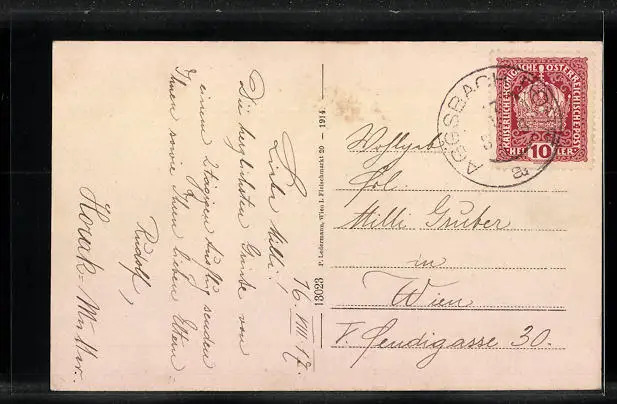 16. VIII 17.
Liebe Milli!
Die herzlichsten Grüße von
einem 2tägigen Ausflug senden
Ihnen sowie Ihren lieben Eltern
Rudolf,
Novak-Müller.
13023
P. Ledermann, Wien I. Fleischmarkt 20 – 1914.
KAISERLICHE KÖNIGLICHE ÖSTERREICHISCHE POST
HELLER 10 HELLER
AGGSBACH
Wohlgeb.
Frl.
Milli Gruber
in
Wien
V. Fendigasse 30.